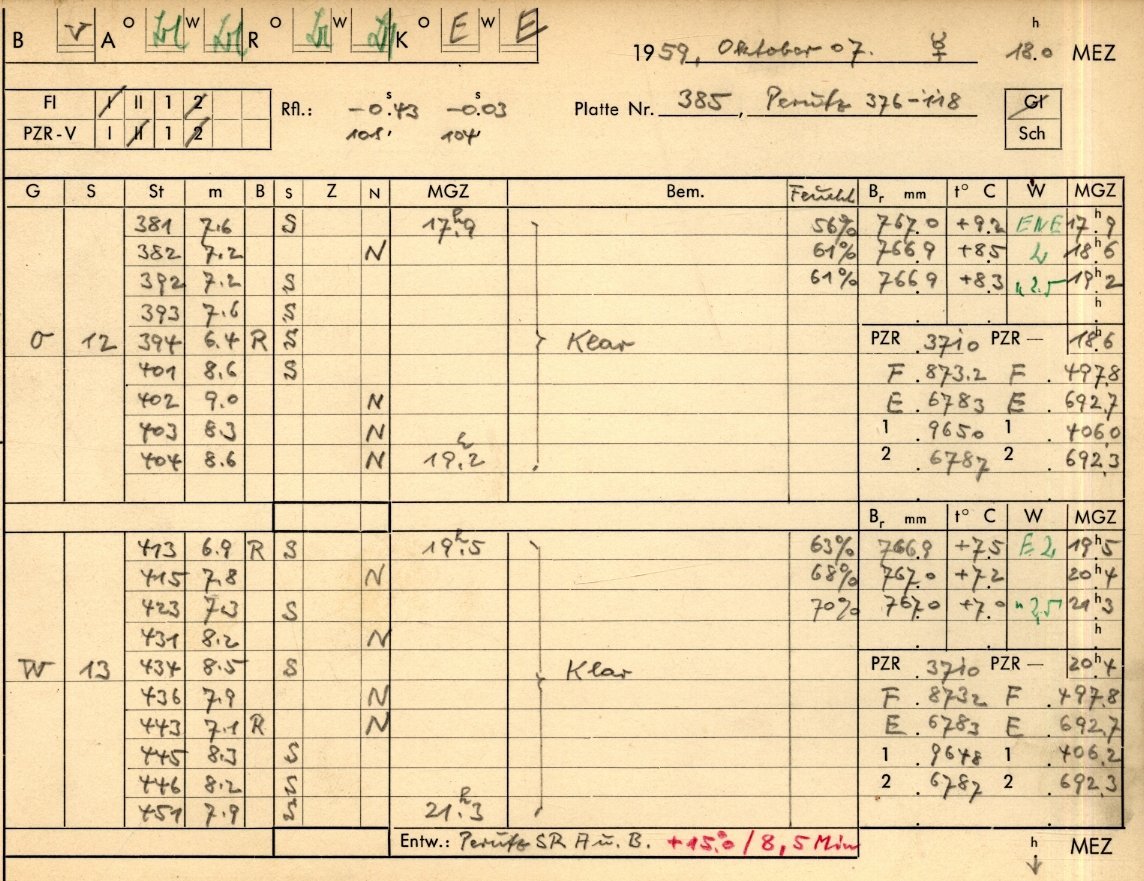 B V A O W R O W K O E W E
1959, Oktober 07. ☿ 18.0 h MEZ
FI I II 1 2 Rfl.: -0.43 s -0.03 s Platte Nr. 385, Perutz 376-118 Gr
PZR-V I II 1 2 101' 104' Sch
G S St m B S Z N MGZ Bem. Feucht. Br mm t° C W MGZ
381 7.6 S 17h.9 56% 767.0 +9.2 ENE 17h.9
382 7.2 N 61% 766.9 +8.5 2 18h.6
392 7.2 S 61% 766.9 +8.3 " 2.5 19h.2
393 7.6 S h
O 12 394 6.4 R S Klar PZR .3710 PZR — 18h.6
401 8.6 S F .873.2 F .497.8
402 9.0 N E .6783 E .692.7
403 8.3 N 1 .9650 1 .406.0
404 8.6 N 19h.2 2 .6787 2 .692.3
Br mm t° C W MGZ
413 6.9 R S 19h.5 63% 766.9 +7.5 E 2 19h.5
415 7.8 N 68% 767.0 +7.2 20h.4
423 7.3 S 70% 767.0 +7.0 " 2,5 21h.3
431 8.2 N h
W 13 434 8.5 S Klar PZR .3710 PZR — 20h.4
436 7.9 N F .8732 F .497.8
443 7.1 R N E .6783 E .692.7
445 8.3 S 1 .9648 1 .406.2
446 8.2 S 2 .6787 2 .692.3
451 7.9 S 21h.3
Entw.: Perutz SR A u. B. +15.0° / 8,5 Min h MEZ